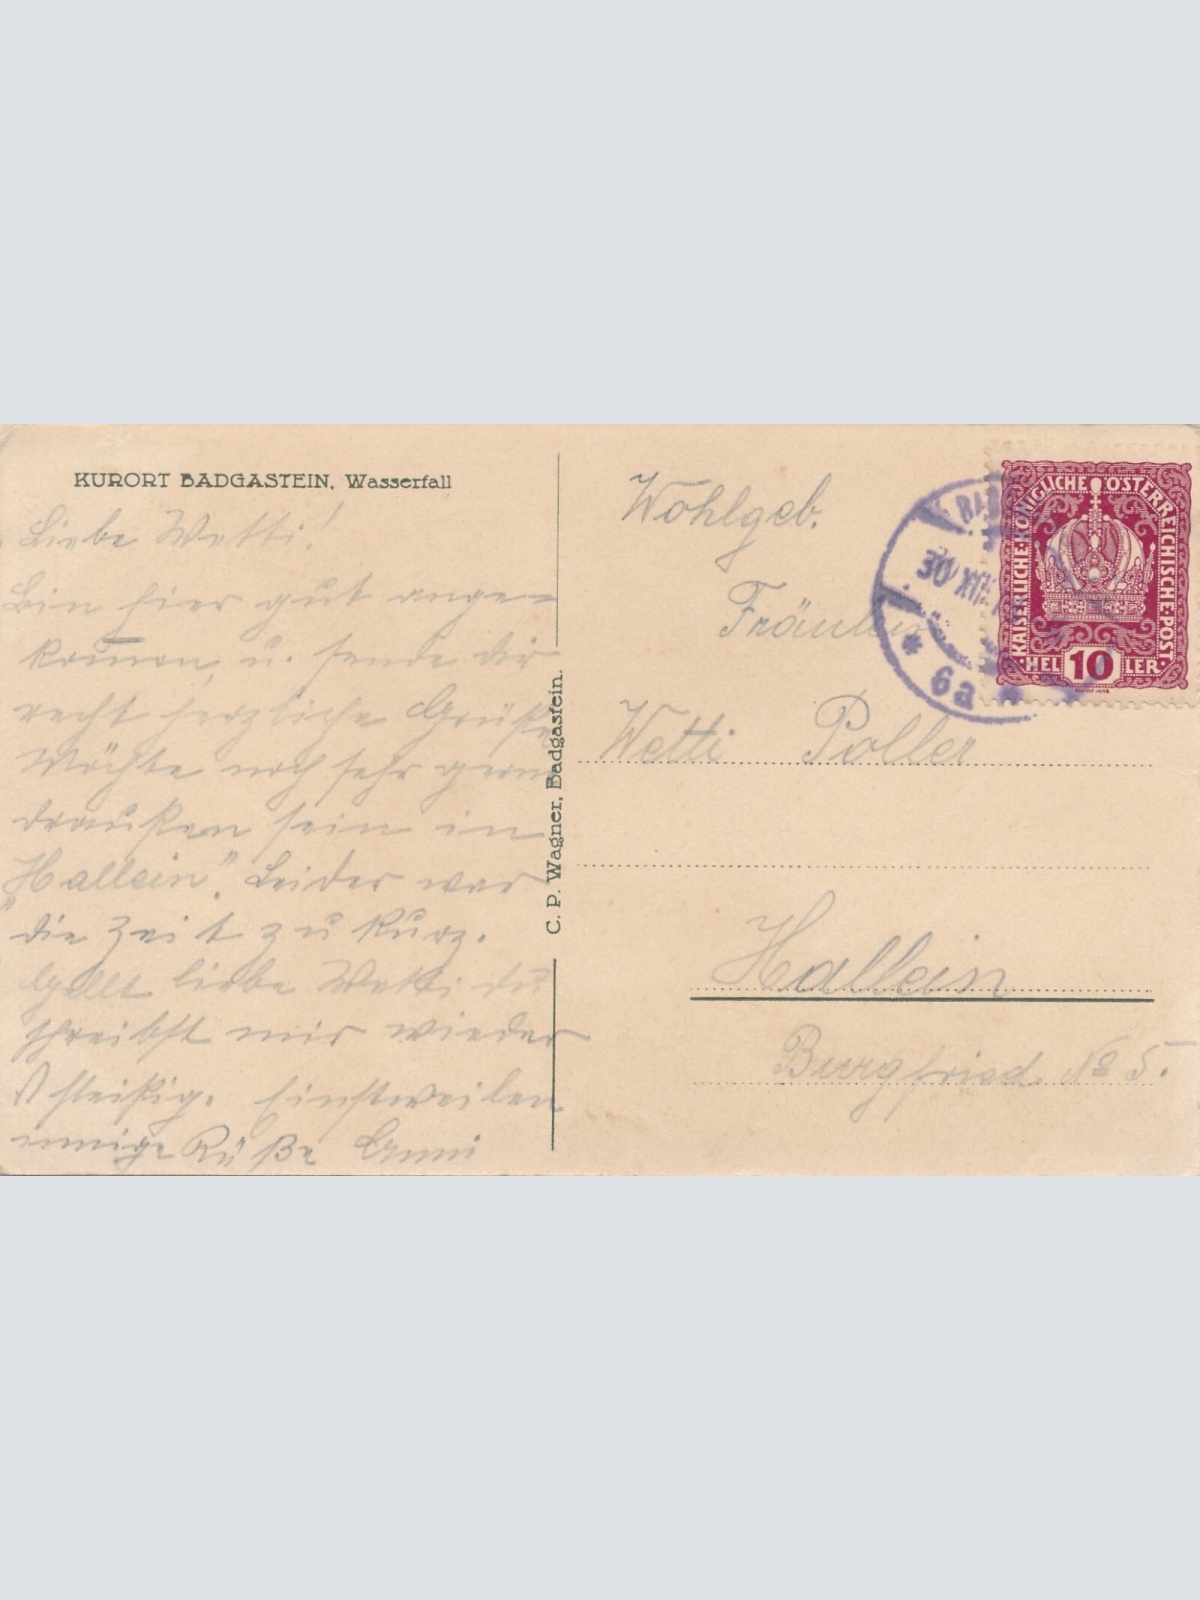 KURORT BADGASTEIN, Wasserfall
Liebe Wetti!
Bin hier gut ange=
kom̄en, u. sende dir
recht herzliche Grüße
Möchte noch sehr gern
draußen sein in
„Hallein". Leider war
die Zeit zu kurz.
Gelt liebe Wetti du
schreibst mir wieder
fleißig. Einstweilen
innige Küße Anni
C. P. Wagner, Badgastein.
Wohlgeb.
Fräulein
Wetti Poller
Hallein
Burgfried No 5.
KAISERLICHE·KÖNIGLICHE ÖSTERREICHISCHE·POST·
HEL 10 LER
30 XII
* 6a *